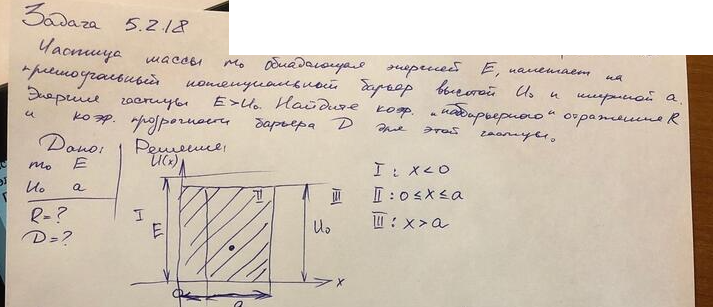 Задача 5.2.18
Частица массы m₀ обладающая энергией E, налетает на
прямоугольный потенциальный барьер высотой U₀ и шириной a.
Энергия частицы E>U₀. Найдите коэф. "надбарьерного" отражения R
и коэф. прозрачности барьера D для этой частицы.
Дано: Решение:
m₀ E
U₀ a
R=?
D=?
U(x)
I
E
II
III
U₀
0
a
x
I : x<0
II : 0≤x≤a
III : x>a